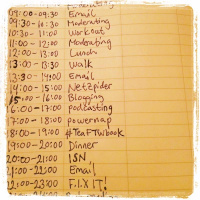 09:00-09:30 Email
09:30-10:30 Moderating
10:30-11:00 Workout
11:00-12:00 Moderating
12:00-13:00 Lunch
13:00-13:30 Walk
13:30-14:00 Email
14:00-15:00 Netzpider
15:00-16:00 Blogging
16:00-17:00 Podcasting
17:00-18:00 powernap
18:00-19:00 #TeaFTWbook
19:00-20:00 Dinner
20:00-21:00 ISN
21:00-22:00 Email
22:00-23:00 F.I.X IT!